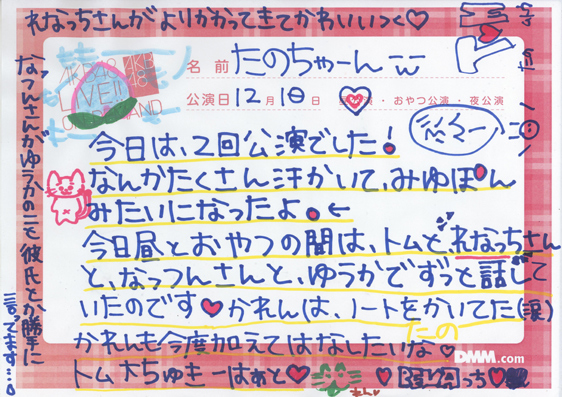 れなっちさんがよりかかってきてかわいいっく♡
AKB48
LIVE!!
ON DEMAND
名前 たのちゃーん
公演日 12月1日 ・おやつ公演・夜公演
今日は、2回公演でした!
なんかたくさん汗かいて、みゆぽん
みたいになったよ。←
今日昼とおやつの間は、トムとれなっちさん
と、なっつんさんと、ゆうかでずっと話して
いたのです♥かれんは、ノートをかいてた(涙)
かれんも今度加えてはなしたいな♡
たの
トム大ちゅきーはぁと♥
っち♥
DMM.com
なっつんさんがゆうかのこと彼氏とか勝手に
言ってます…。